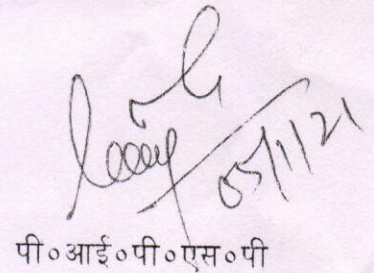 05/11/21
पी०आई०पी०एस०पी